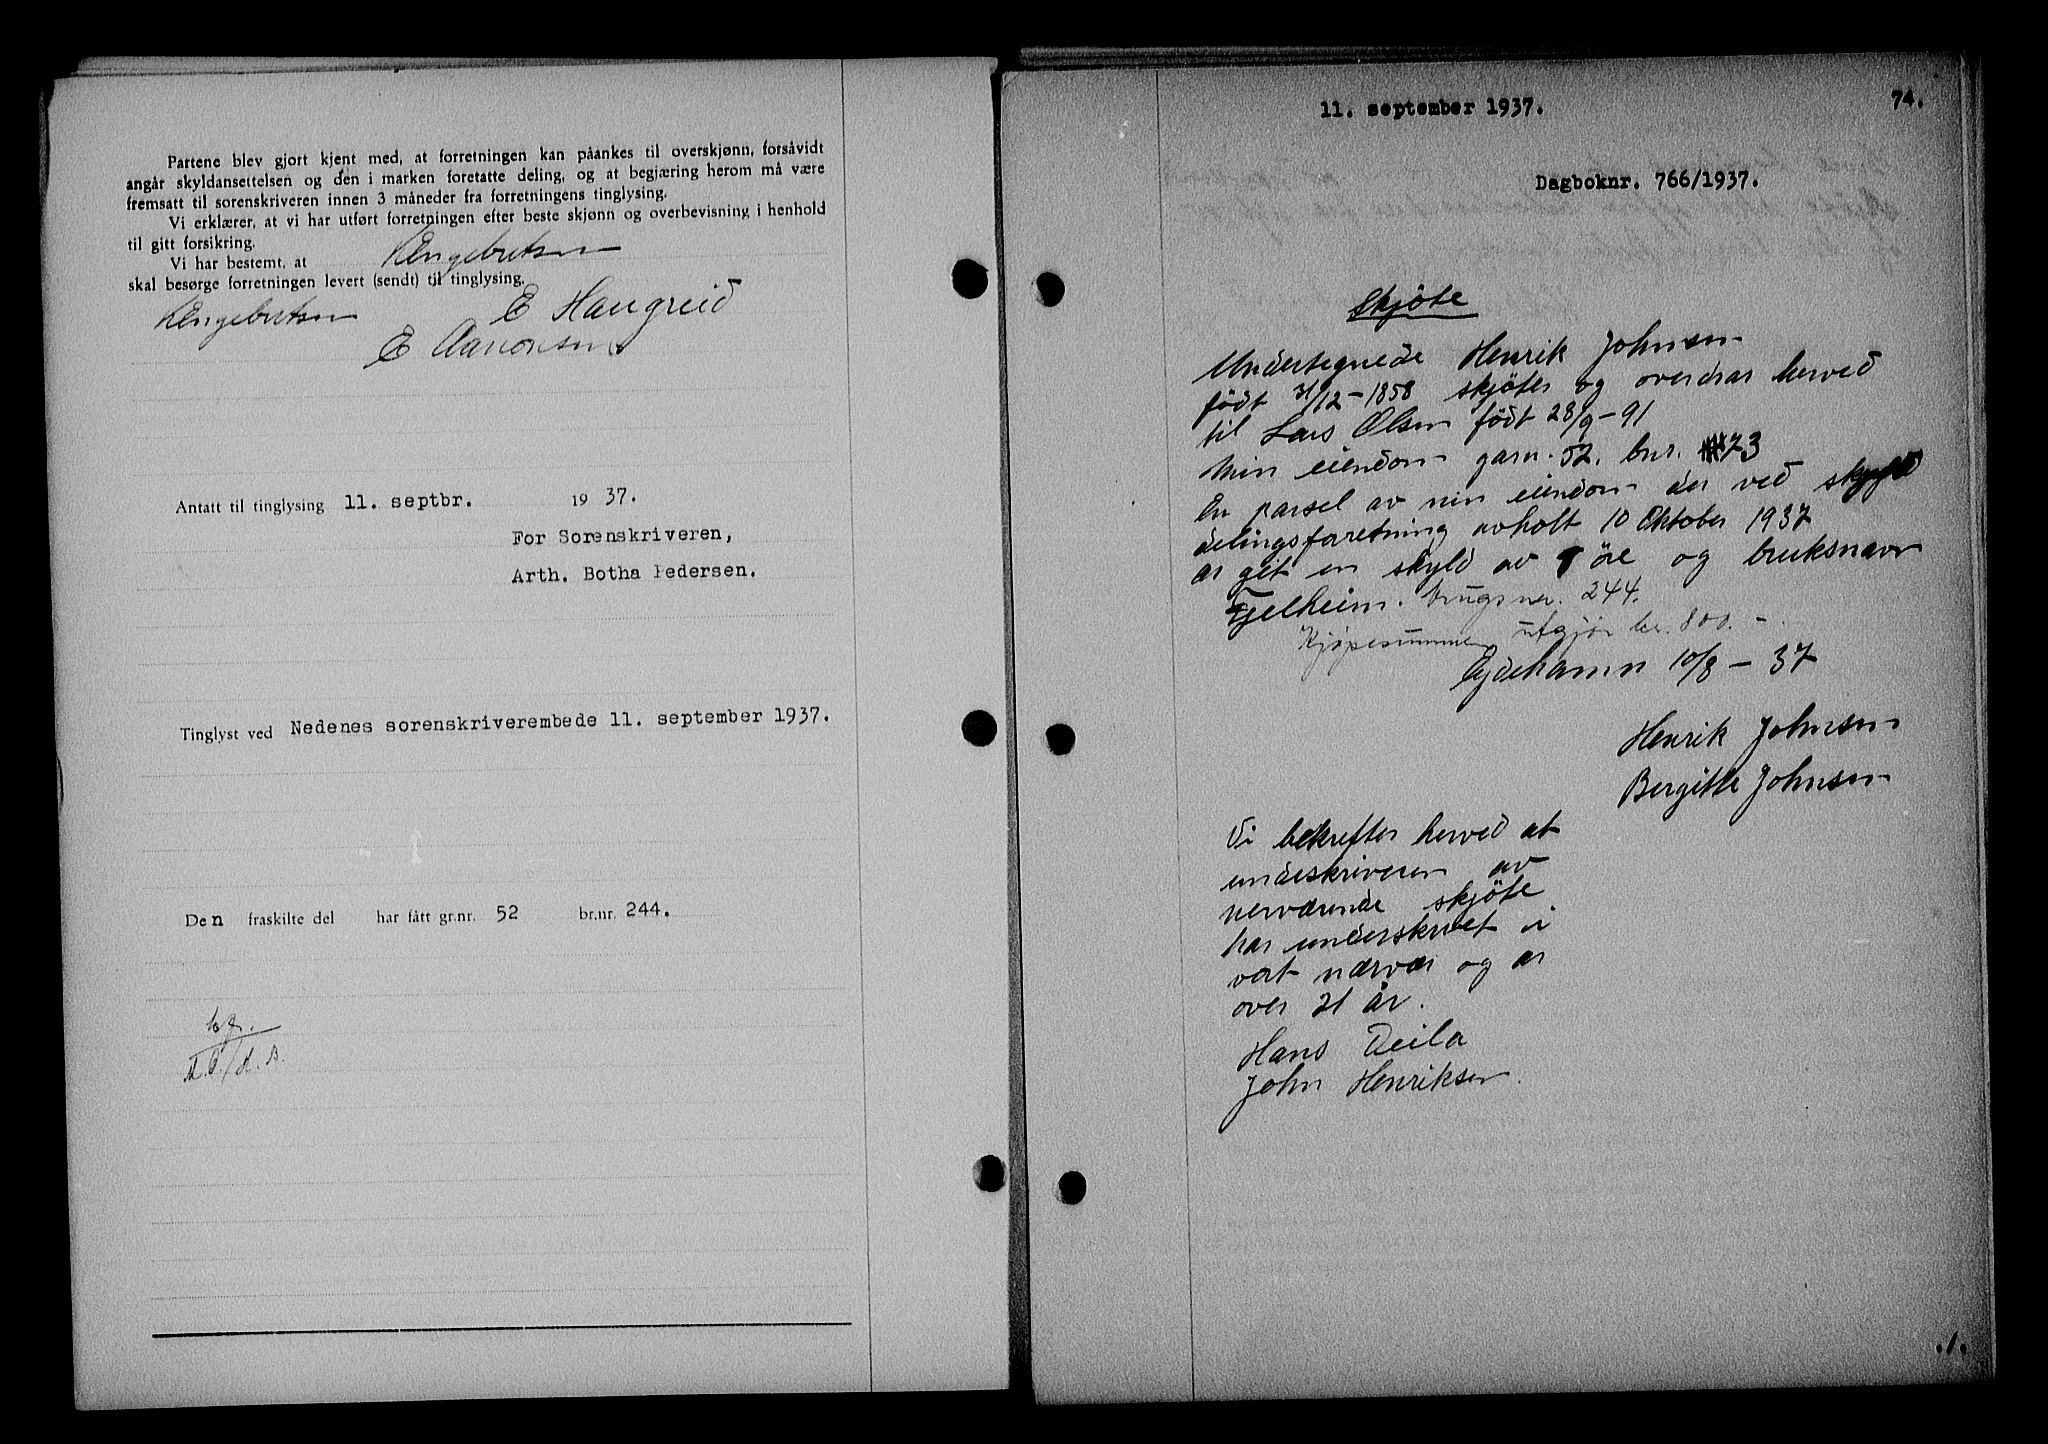 Partene blev gjort kjent med, at forretningen kan påankes til overskjønn, forsåvidt
angår skyldansettelsen og den i marken foretatte deling, og at begjæring herom må være
fremsatt til sorenskriveren innen 3 måneder fra forretningens tinglysing.
Vi erklærer, at vi har utført forretningen efter beste skjønn og overbevisning i henhold
til gitt forsikring.
Vi har bestemt, at KEngebretsen
skal besørge forretningen levert (sendt) til tinglysing.
KEngebretsen E Haugreid
E Aanonsen
Antatt til tinglysing 11. septbr. 1937.
For Sorenskriveren,
Arth. Botha Pedersen.
Tinglyst ved Nedenes sorenskriverembede 11. september 1937.
Den fraskilte del har fått gr.nr. 52 br.nr. 244.
11. september 1937.
74.
Dagboknr. 766/1937.
Skjöte
Undertegnede Henrik Johnsen
födt /12-1858 skjöter og overdrar herved
til Lars Olsen födt 28/9-91
Min eiendom garn. 52. bnr. 73
En parsel av min eiendom der ved skyld
delingsforetning avholt 10 Oktober 1937
er git en skyld av öre og bruksnavn
Fjelheim. brugsner. 244.
Kjøpesummen utgjør kr. 800.-
Eydehamn 10/8-37
Henrik Johnsen
Bergitte Johnsen
Vi bekrefter herved at
underskriveren av
nerværende skjöte
har underskrivet i
vort nærvær og er
over 21 år.
Hans Deila
John Henriksen.
./.